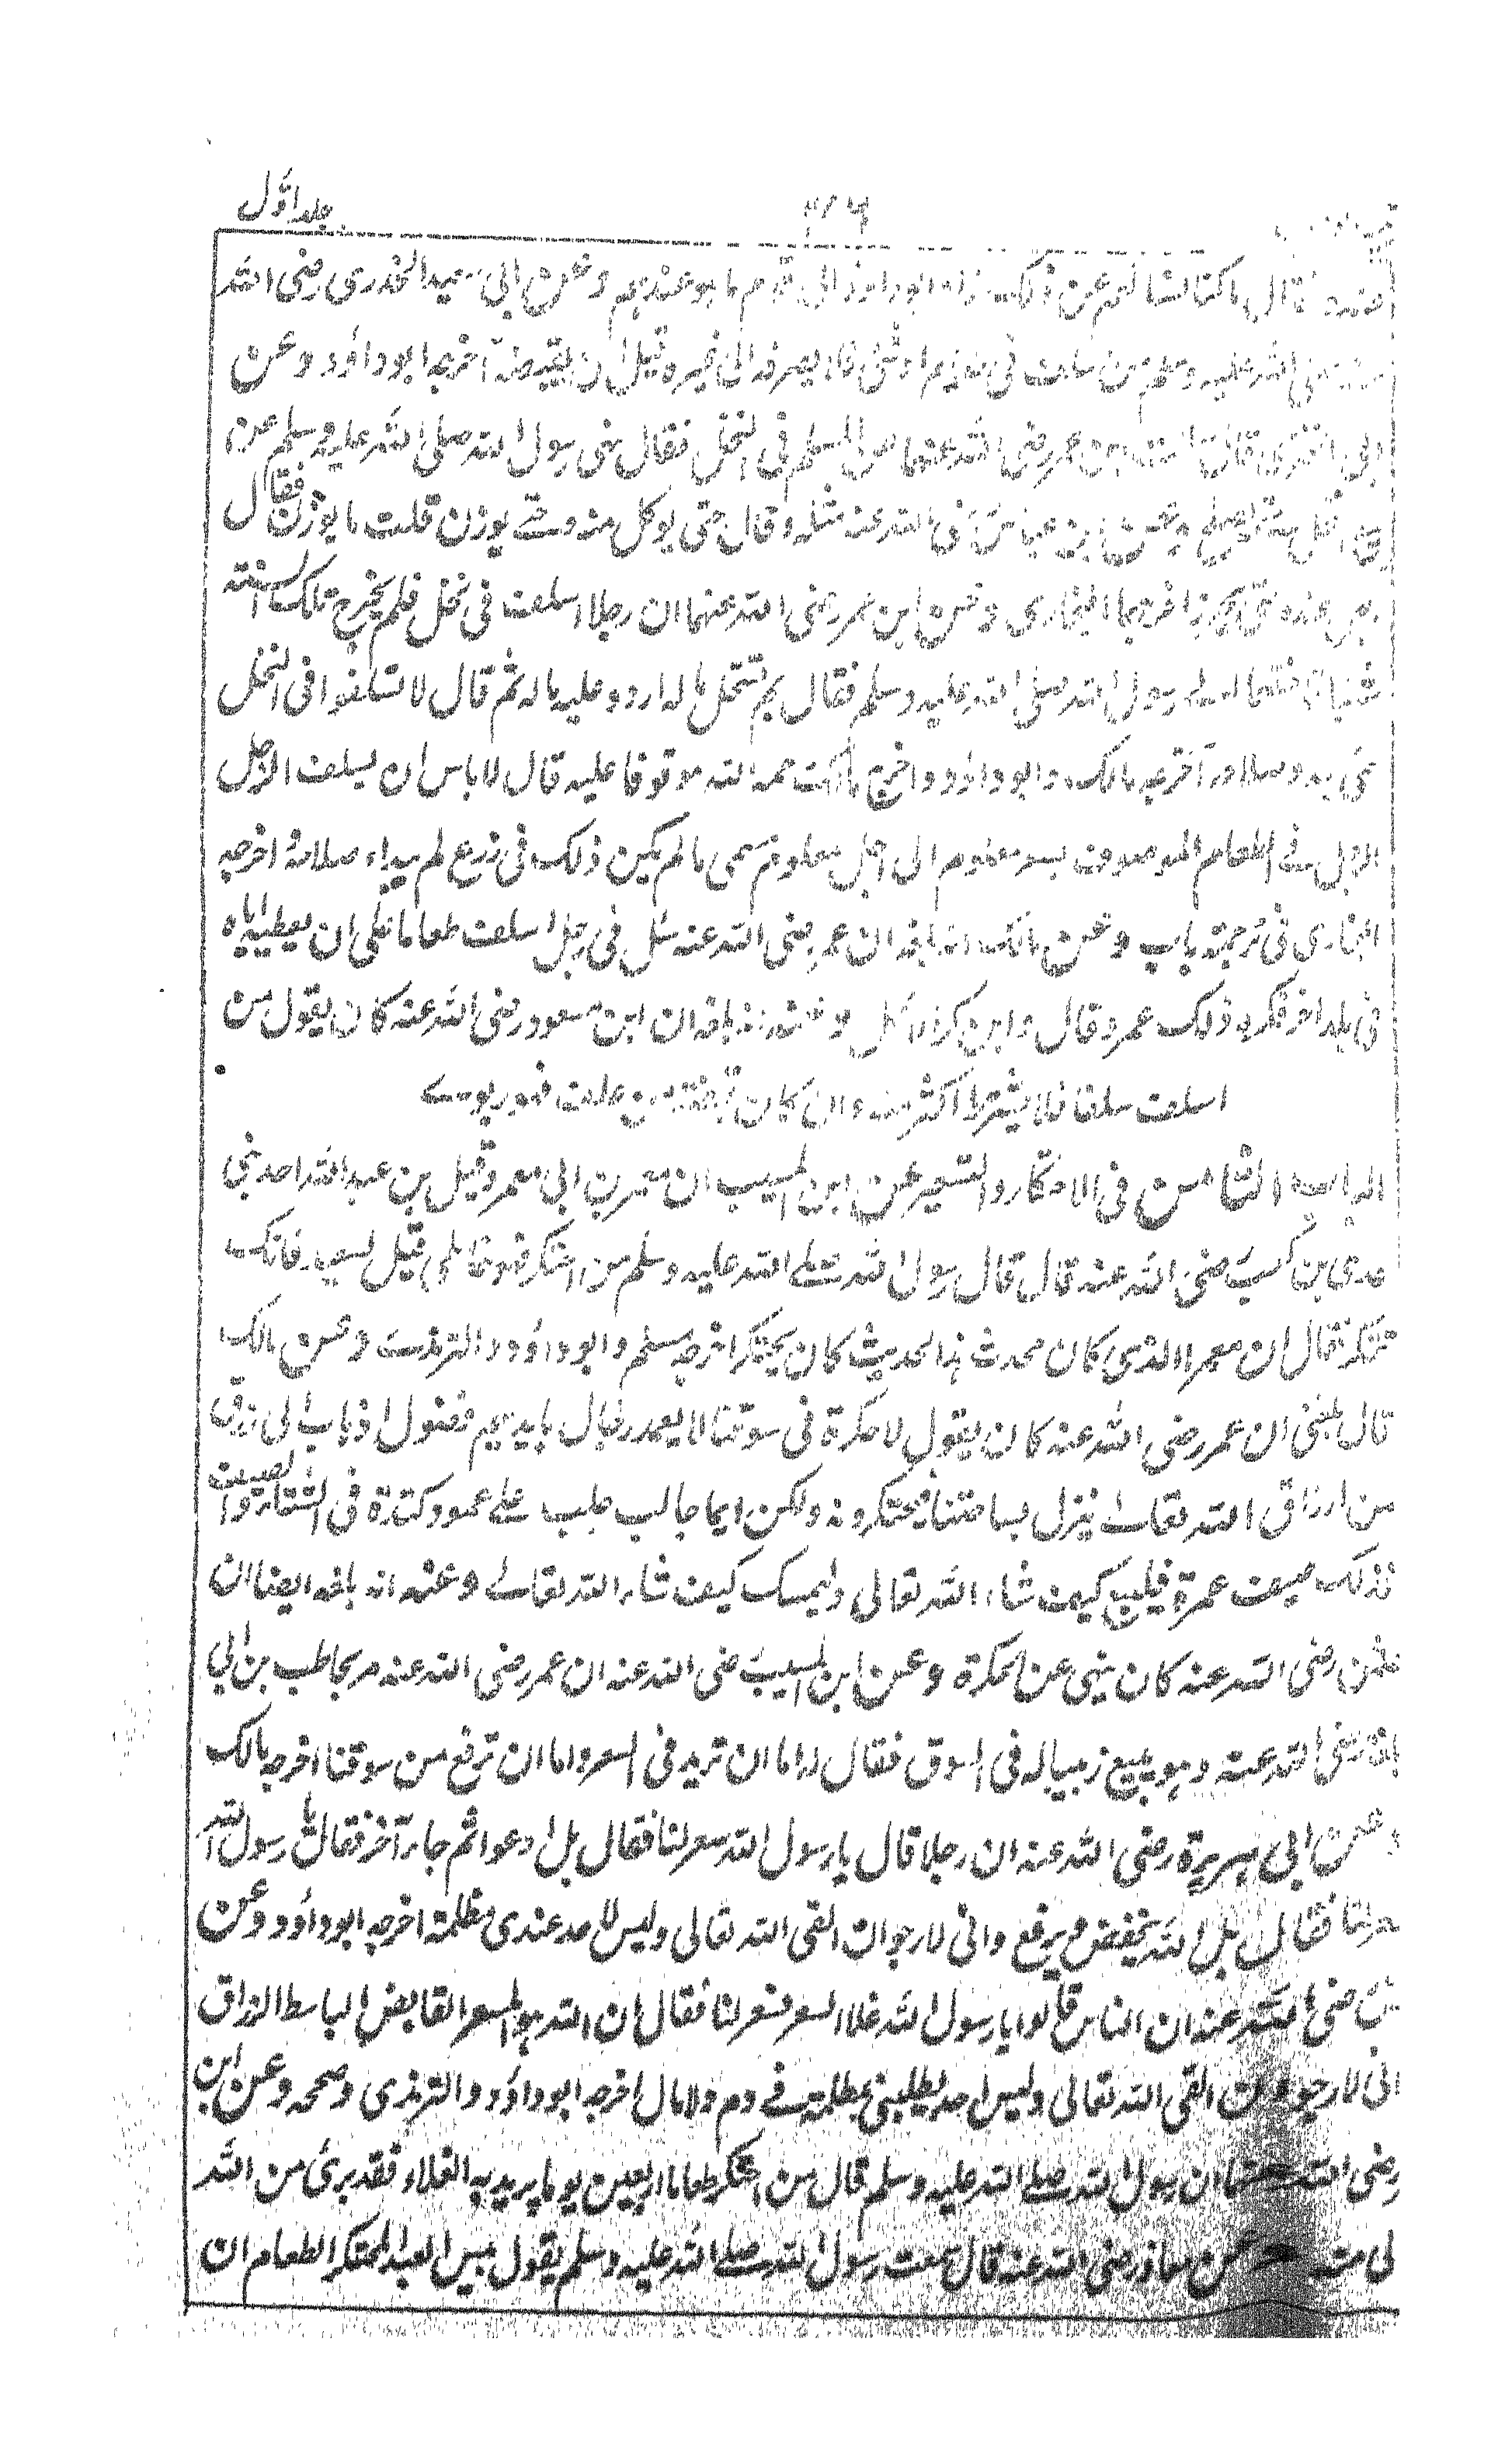 جلد اوّل
قال ما كنا نسألهم عن ذلك زاد ابوداود الى قوم ما هو عندهم وعن ابى سعيد الخدرى رضى الله
صلى الله عليه وسلم من سلف فى شىء فلا يصرفه الى غيره قبل ان يقبضه اخرجه ابوداؤد وعن
ابى البخترى قال سألت ابن عمر رضى الله عنهما عن السلم فى النخل فقال نهى رسول الله صلى الله عليه وسلم عن
بيع النخل حتى يصلح وعن ابن عباس رضى الله عنه مثله وقال حتى يوكل منه وحتے يوزن قلت ما يوزن فقال
رجل عنده حتى يحرز اخرجهما البخارى وعن ابن عمر رضى الله عنهما ان رجلا اسلف فى نخل فلم يخرج تلك السنته
شيئا فاختصما الے رسول الله صلى الله عليه وسلم فقال بم تستحل ماله اردد عليه ماله ثم قال لا تسلفوا فى النخل
حتى يبدو صلاحه اخرجه مالك وابوداؤد واخرج مالك رحمه الله موقوفا عليه قال لا باس ان يسلف الرجل
الرجل فے الطعام الموصوف بسعر معلوم الى اجل معلوم مسمى ما لم يكن ذلك فى زرع لم يبداء صلاحه اخرجه
البخارى فى ترجمته باب وعن مالك انه بلغه ان عمر رضى الله عنه سئل فى رجل اسلف طعاما على ان يعطيه اياه
فى بلد اخر فكره ذلك عمر وقال واين كراء الحمل وعنه انه بلغه ان ابن مسعود رضى الله عنه كان يقول من
اسلف سلفا فلا يشترط اكثر منه وان كان قبضته من علف فهو ربوا
الباب الثامن فى الاحتكار والتسعير عن ابن المسيب ان معمر بن ابى معمر وقيل بن عبد الله احد بنى
عدى بن كعب رضى الله عنه قال قال رسول الله صلے الله عليه وسلم من احتكر فهو خاطئ قيل لسعيد فانك
تحتكر فقال ان معمرا الذى كان يحدث هذا الحديث كان يحتكر اخرجه مسلم وابوداؤد والترمذے وعن مالك
قال بلغنى ان عمر رضى الله عنه كان يقول لا حكرة فى سوقنا لا يعمد رجال بايديهم فضول اذهاب الى رزق
من ارزاق الله تعالے ينزل بساحتنا فيحتكرونه ولكن ايما جالب جلب علے عمود كتده فى الشتاء والصيف
فذلك ضيف عمر فليبع كيف شاء الله تعالى وليمسك كيف شاء الله تعالے وعنه انه بلغه ايضا ان
عثمن رضى الله عنه كان ينهى عن الحكرة وعن ابن المسيب رضى الله عنه ان عمر رضى الله عنه مر بحاطب بن ابى
بلتعة رضى الله عنه وهو يبيع زبيبا له فى السوق فقال له اما ان تزيد فى السعر واما ان ترفع من سوقنا اخرجه مالك
وعن ابى هريرة رضى الله عنه ان رجلا قال يا رسول الله سعر لنا فقال بل ادعوا ثم جاءه آخر فقال يا رسول الله
سعر لنا فقال بل الله يخفض ويرفع وانى لارجوان القى الله تعالى وليس لاحد عندى مظلمة اخرجه ابوداؤد وعن
انس رضى الله عنه ان الناس قالوا يا رسول الله غلا السعر فسعر لنا فقال ان الله هو المسعر القابض الباسط الرزاق
انى لارجو ان القى الله تعالى وليس احد يطلبنى بمظلمة فے دم ولا مال اخرجه ابوداؤد والترمذى وصححه وعن ابن
رضى الله عنهما ان رسول الله صلے الله عليه وسلم قال من احتكر طعاما اربعين يوما يريد به الغلاء فقد برئ من الله
لى منه وعن معاذ رضى الله عنه قال سمعت رسول الله صلے الله عليه وسلم يقول بيس العبد المحتكر الطعام ان